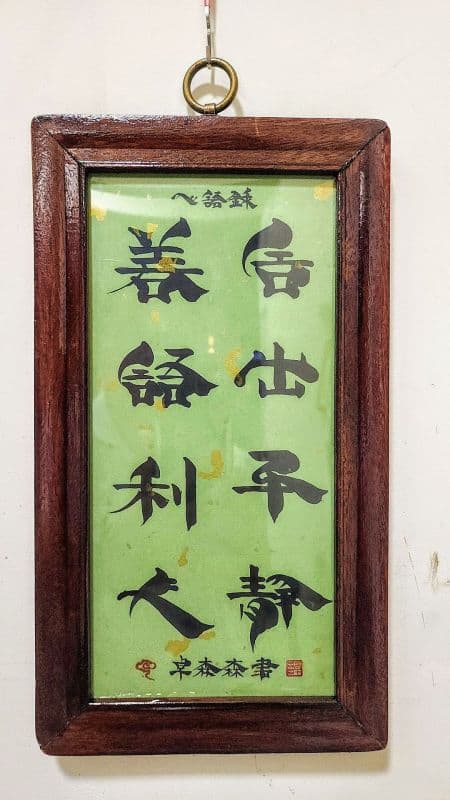 心語錄
言出平靜
善語利人
卓森森書